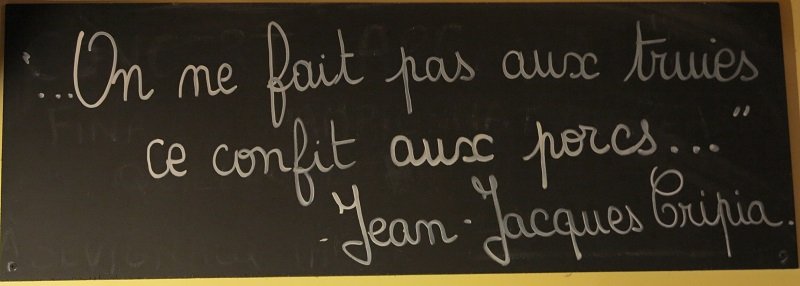 "...On ne fait pas aux truies
ce confit aux porcs..."
- Jean-Jacques Cripia.